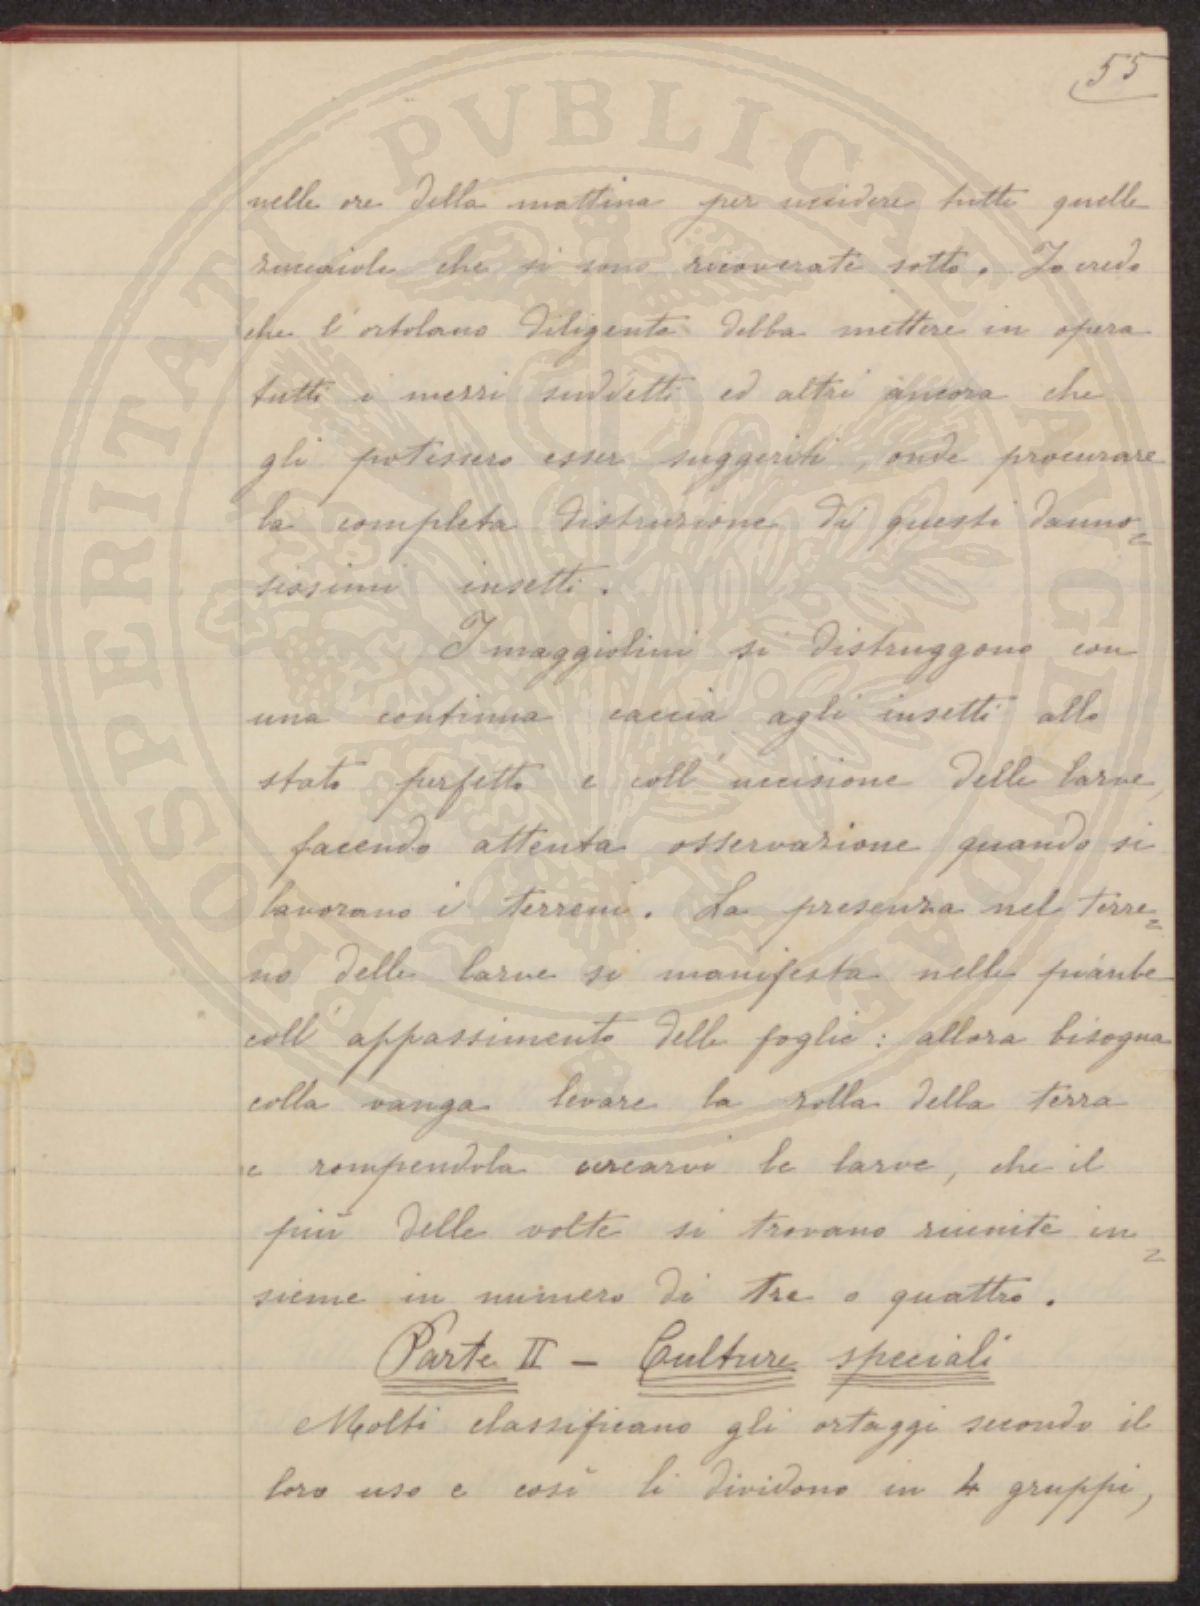 55
nelle ore della mattina per uccidere tutte quelle
zuccaiole che si sono ricoverate sotto. Io credo
che l'ortolano diligente debba mettere in opera
tutti i mezzi suddetti ed altri ancora che
gli potessero esser suggeriti, onde procurare
la completa distruzione di questi danno=
sissimi insetti.
I maggiolini si distruggono con
una continua caccia agli insetti allo
stato perfetto e coll'uccisione delle larve,
facendo attenta osservazione quando si
lavorano i terreni. La presenza nel terre=
no delle larve si manifesta nelle piante
coll'appassimento delle foglie: allora bisogna
colla vanga levare la zolla della terra
e rompendola cercarvi le larve, che il
più delle volte si trovano riunite in=
sieme in numero di tre o quattro.
Parte II – Culture speciali
Molti classificano gli ortaggi secondo il
loro uso e così li dividono in 4 gruppi,
PROSPERITATI PVBLICAE AVGENDAE